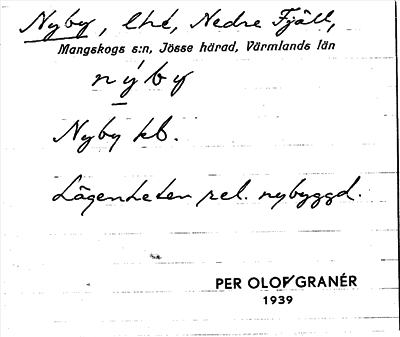 Nyby, lht, Nedre Fjäll,
Mangskogs s:n, Jösse härad, Värmlands län
nýby
Nyby kb.
Lägenheten rel. nybyggd.
PER OLOF GRANÉR
1939